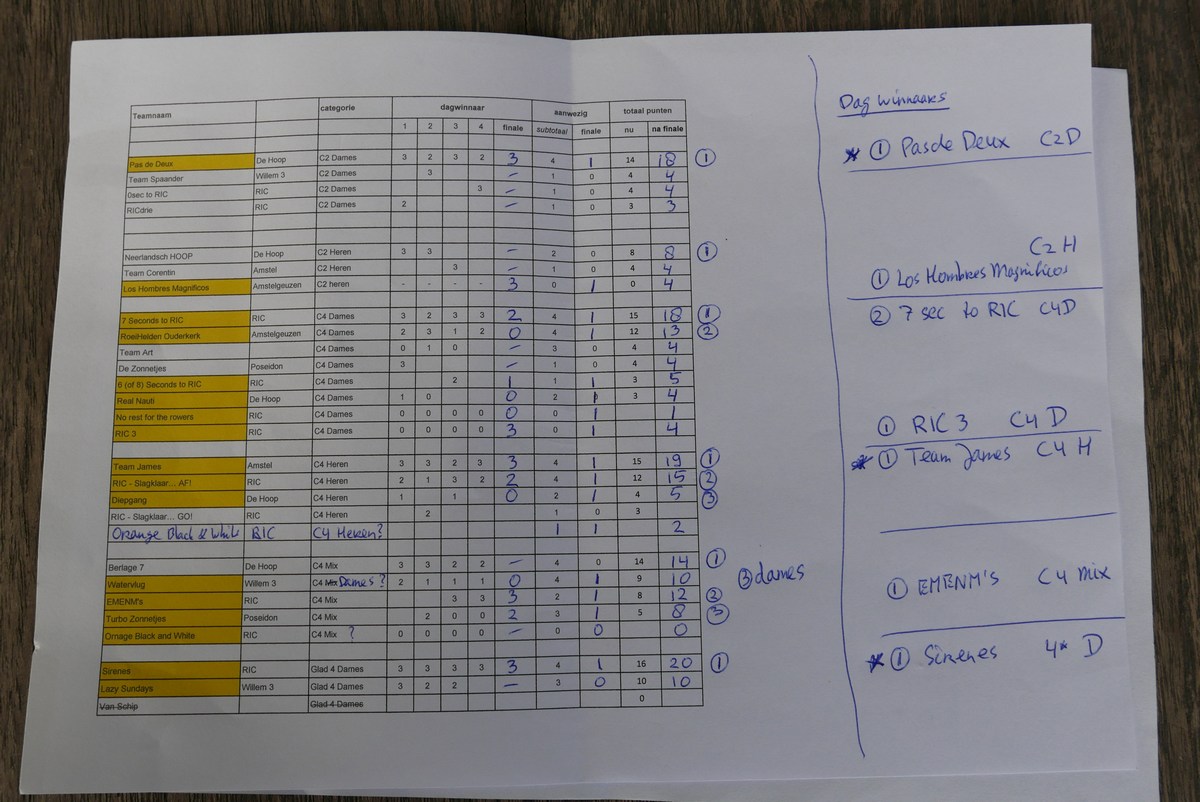 Teamnaam categorie dagwinnaar aanwezig totaal punten
1 2 3 4 finale subtotaal finale nu na finale
Pas de Deux De Hoop C2 Dames 3 2 3 2 3 4 1 14 18 ①
Team Spaander Willem 3 C2 Dames 3 – 1 0 4 4
0sec to RIC RIC C2 Dames 3 – 1 0 4 4
RICdrie RIC C2 Dames 2 – 1 0 3 3
Neerlandsch HOOP De Hoop C2 Heren 3 3 – 2 0 8 8 ①
Team Corentin Amstel C2 Heren 3 – 1 0 4 4
Los Hombres Magnificos Amstelgeuzen C2 heren - - - - 3 0 1 0 4
7 Seconds to RIC RIC C4 Dames 3 2 3 3 2 4 1 15 18 ①
RoeiHelden Ouderkerk Amstelgeuzen C4 Dames 2 3 1 2 0 4 1 12 13 ②
Team Art C4 Dames 0 1 0 – 3 0 4 4
De Zonnetjes Poseidon C4 Dames 3 – 1 0 4 4
6 (of 8) Seconds to RIC RIC C4 Dames 2 1 1 1 3 5
Real Nauti De Hoop C4 Dames 1 0 0 2 1 3 4
No rest for the rowers RIC C4 Dames 0 0 0 0 0 0 1 1
RIC 3 RIC C4 Dames 0 0 0 0 3 0 1 4
Team James Amstel C4 Heren 3 3 2 3 3 4 1 15 19 ①
RIC - Slagklaar... AF! RIC C4 Heren 2 1 3 2 2 4 1 12 15 ②
Diepgang De Hoop C4 Heren 1 1 0 2 1 4 5 ③
RIC - Slagklaar... GO! RIC C4 Heren 2 1 0 3
Orange Black & White RIC C4 Heren? 1 1 2
Berlage 7 De Hoop C4 Mix 3 3 2 2 – 4 0 14 14 ①
Watervlug Willem 3 C4 Mix Dames ? 2 1 1 1 0 4 1 9 10 ③ dames
EMENM's RIC C4 Mix 3 3 3 2 1 8 12 ②
Turbo Zonnetjes Poseidon C4 Mix 2 0 0 2 3 1 5 8 ③
Ornage Black and White RIC C4 Mix ? 0 0 0 0 – 0 0 0
Sirenes RIC Glad 4 Dames 3 3 3 3 3 4 1 16 20 ①
Lazy Sundays Willem 3 Glad 4 Dames 3 2 2 – 3 0 10 10
Van Schip Glad 4 Dames 0
Dag winnaars
* ① Pas de Deux C2D
C2 H
① Los Hombres Magnificos
② 7 sec to RIC C4D
① RIC 3 C4 D
* ① Team James C4 H
① EMENM'S C4 mix
* ① Sirenes 4* D